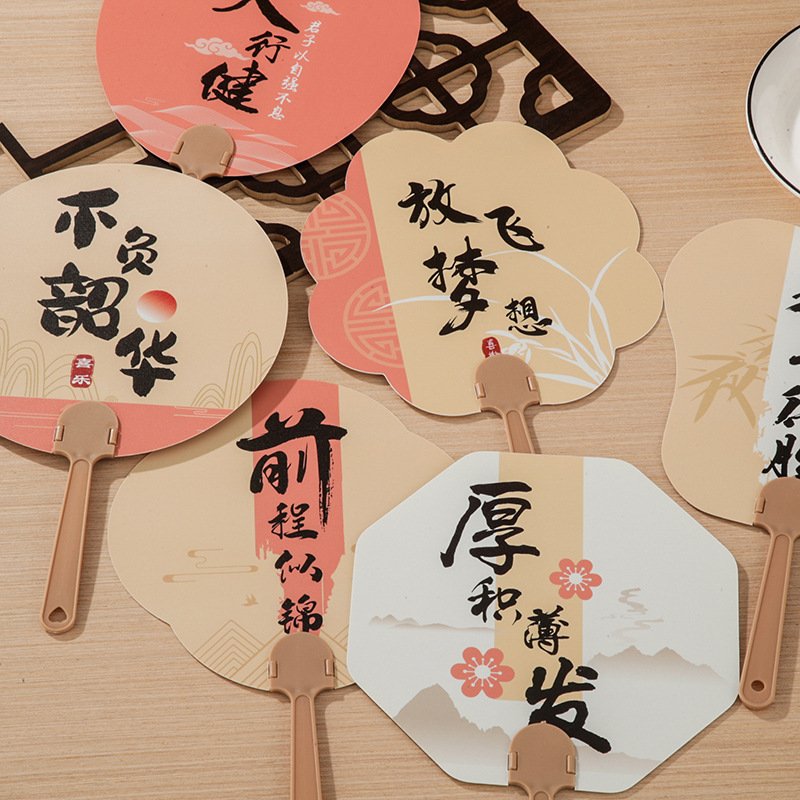 行健
君子以自强不息
不负
韶华
喜乐
放飞
梦想
前
程
似
锦
厚
积
薄
发